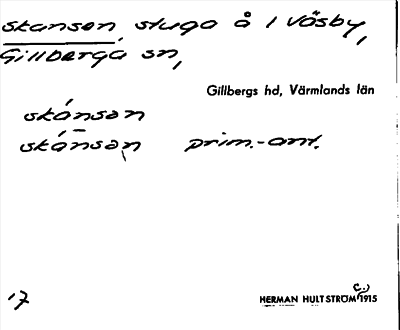 skansen, stuga å 1 Väsby,
Gillberga sn,
Gillbergs hd, Värmlands län
skánsən
skánsən prim.-ant.
HERMAN HULTSTRÖM C:a 1915
17